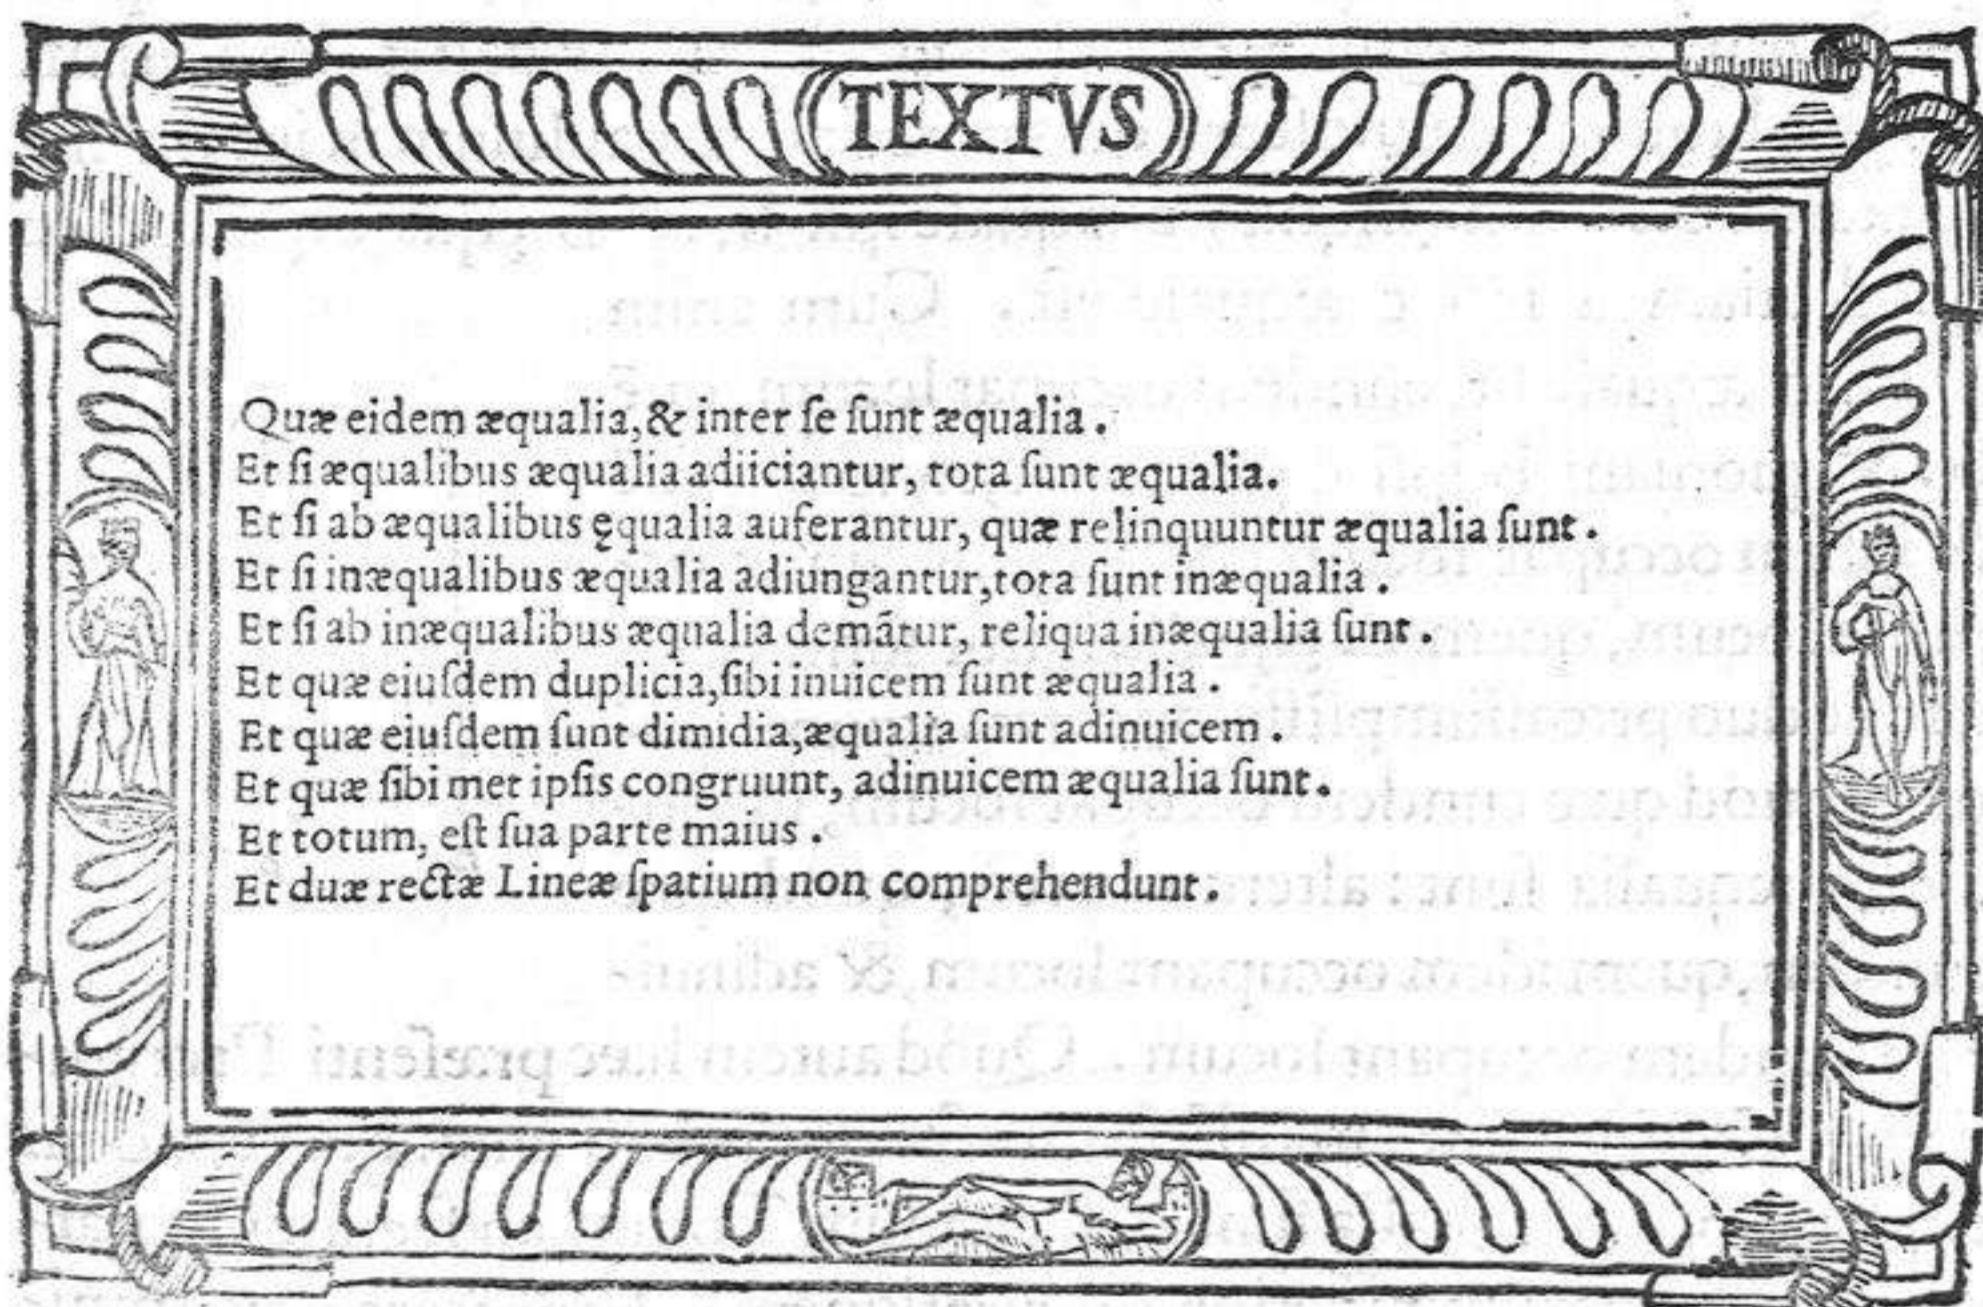 TEXTVS
Quæ eidem æqualia, & inter ſe ſunt æqualia.
Et ſi æqualibus æqualia adiiciantur, tota ſunt æqualia.
Et ſi ab æqualibus ęqualia auferantur, quæ relinquuntur æqualia ſunt.
Et ſi inæqualibus æqualia adiungantur, tota ſunt inæqualia.
Et ſi ab inæqualibus æqualia demãtur, reliqua inæqualia ſunt.
Et quæ eiuſdem duplicia, ſibi inuicem ſunt æqualia.
Et quæ eiuſdem ſunt dimidia, æqualia ſunt adinuicem.
Et quæ ſibi met ipſis congruunt, adinuicem æqualia ſunt.
Et totum, eſt ſua parte maius.
Et duæ rectæ Lineæ ſpatium non comprehendunt.